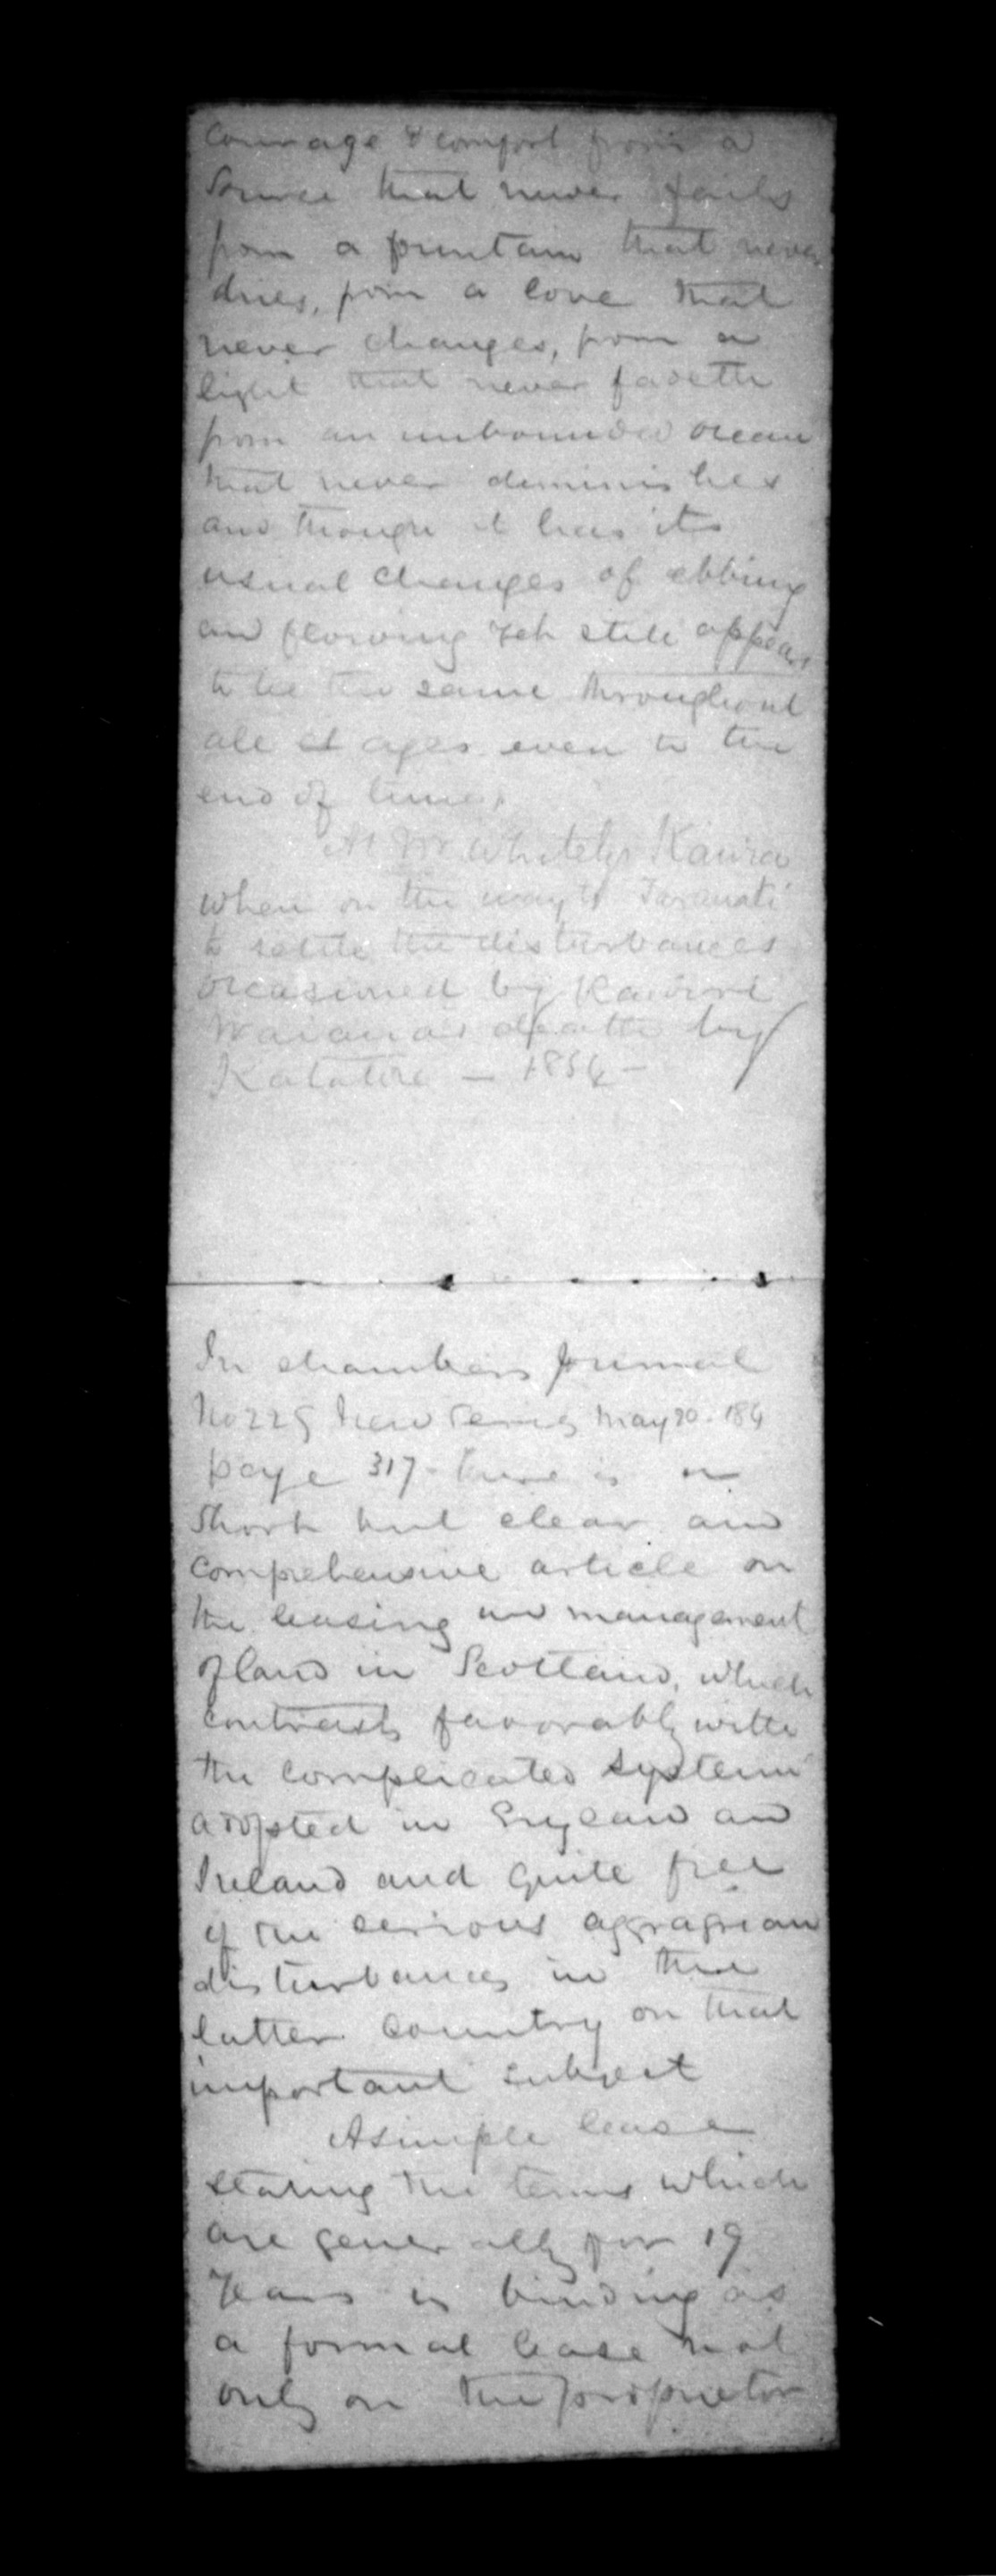 courage & comfort from a
source that never fails
from a fountain that never
dries, from a love that
never changes, from a
light that never fadeth
from an unbounded ocean
that never diminishes
and though it has its
usual changes of ebbing
and flowing yet still appears
to be the same throughout
all ages even to the
end of time.
At Mr Whiteleys Kawia
when on the way to Taranaki
to settle the disturbances
occasioned by Rawiri
Waiaua's death by
Katatore — 1854 —
In chambers Journal
No 229 New Series May 20. 184
page 317 - there is a
short but clear and
comprehensive article on
the leasing and management
of land in Scotland, which
contrasts favorably with
the complicated system
adopted in England and
Ireland and quite free
of the serious aggragrian
disturbances in the
latter country on that
important subject
A simple lease
stating the terms which
are generally for 19
years is binding as
a formal lease not
only on the proprietor